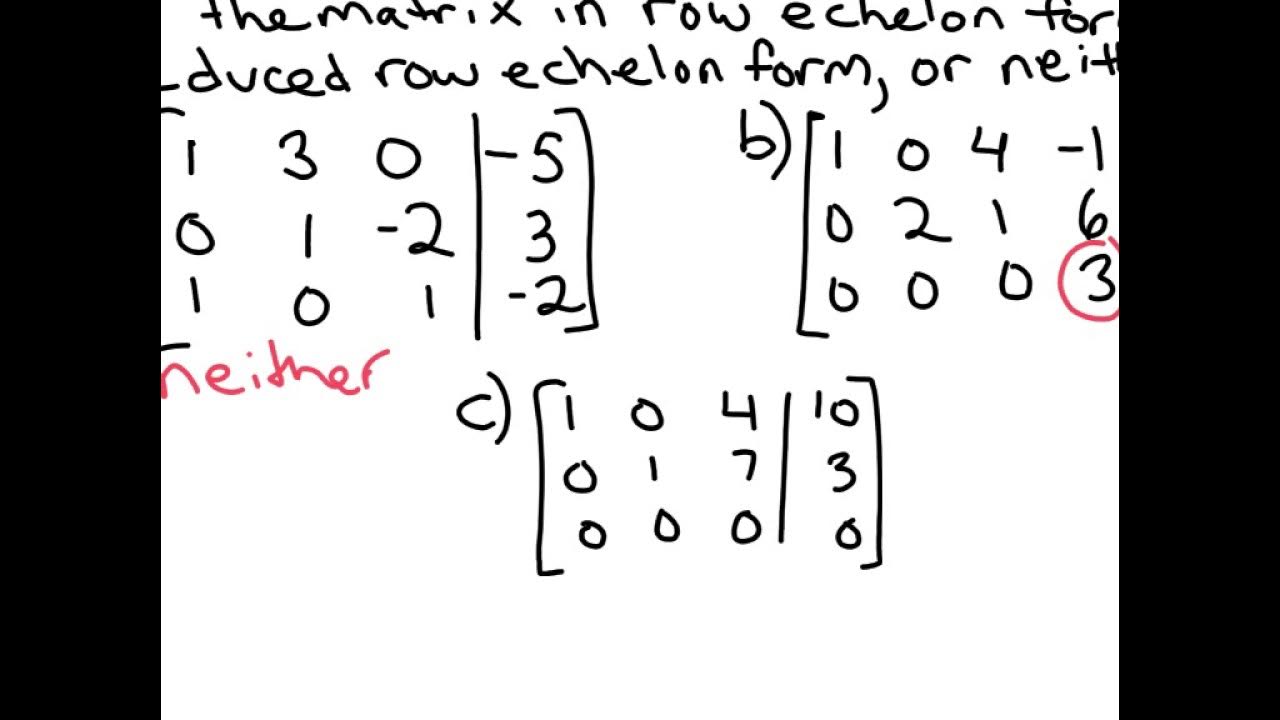 the matrix in row echelon for
duced row echelon form, or neit
1 3 0 | -5
0 1 -2 | 3
1 0 1 | -2
neither
b) 1 0 4 -1
0 2 1 6
0 0 0 3
c) 1 0 4 | 10
0 1 7 | 3
0 0 0 | 0